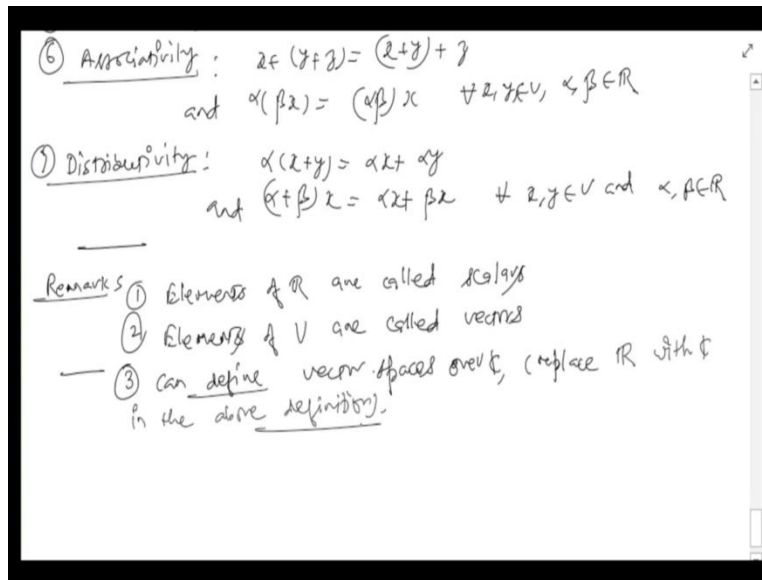 ⑥ Associativity : x+(y+z)=(x+y)+z
and α(βx)=(αβ)x ∀ x,y∈V, α,β∈ℝ
⑦ Distributivity : α(x+y)=αx+αy
and (α+β)x=αx+βx ∀ x,y∈V and α,β∈ℝ
Remarks ① Elements of ℝ are called scalars
② Elements of V are called vectors
③ can define vector spaces over ℂ, (replace ℝ with ℂ
in the above definition).